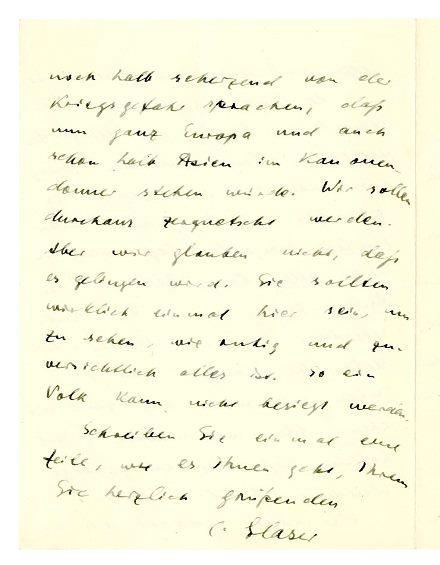 noch halb scherzend von der
Kriegsgefahr sprachen, daß
nun ganz Europa und auch
schon halb Asien im Kanonen-
donner stehen würde. Wir sollen
durchaus zerquetscht werden.
Aber wir glauben nicht, daß
es gelingen wird. Sie sollten
wirklich einmal hier sein, um
zu sehen, wie ruhig und zu-
versichtlich alles ist. So ein
Volk kann nicht besiegt werden.
Schreiben Sie einmal eine
Zeile, wie es Ihnen geht, Ihrem
Sie herzlich grüßenden
C. Glaser